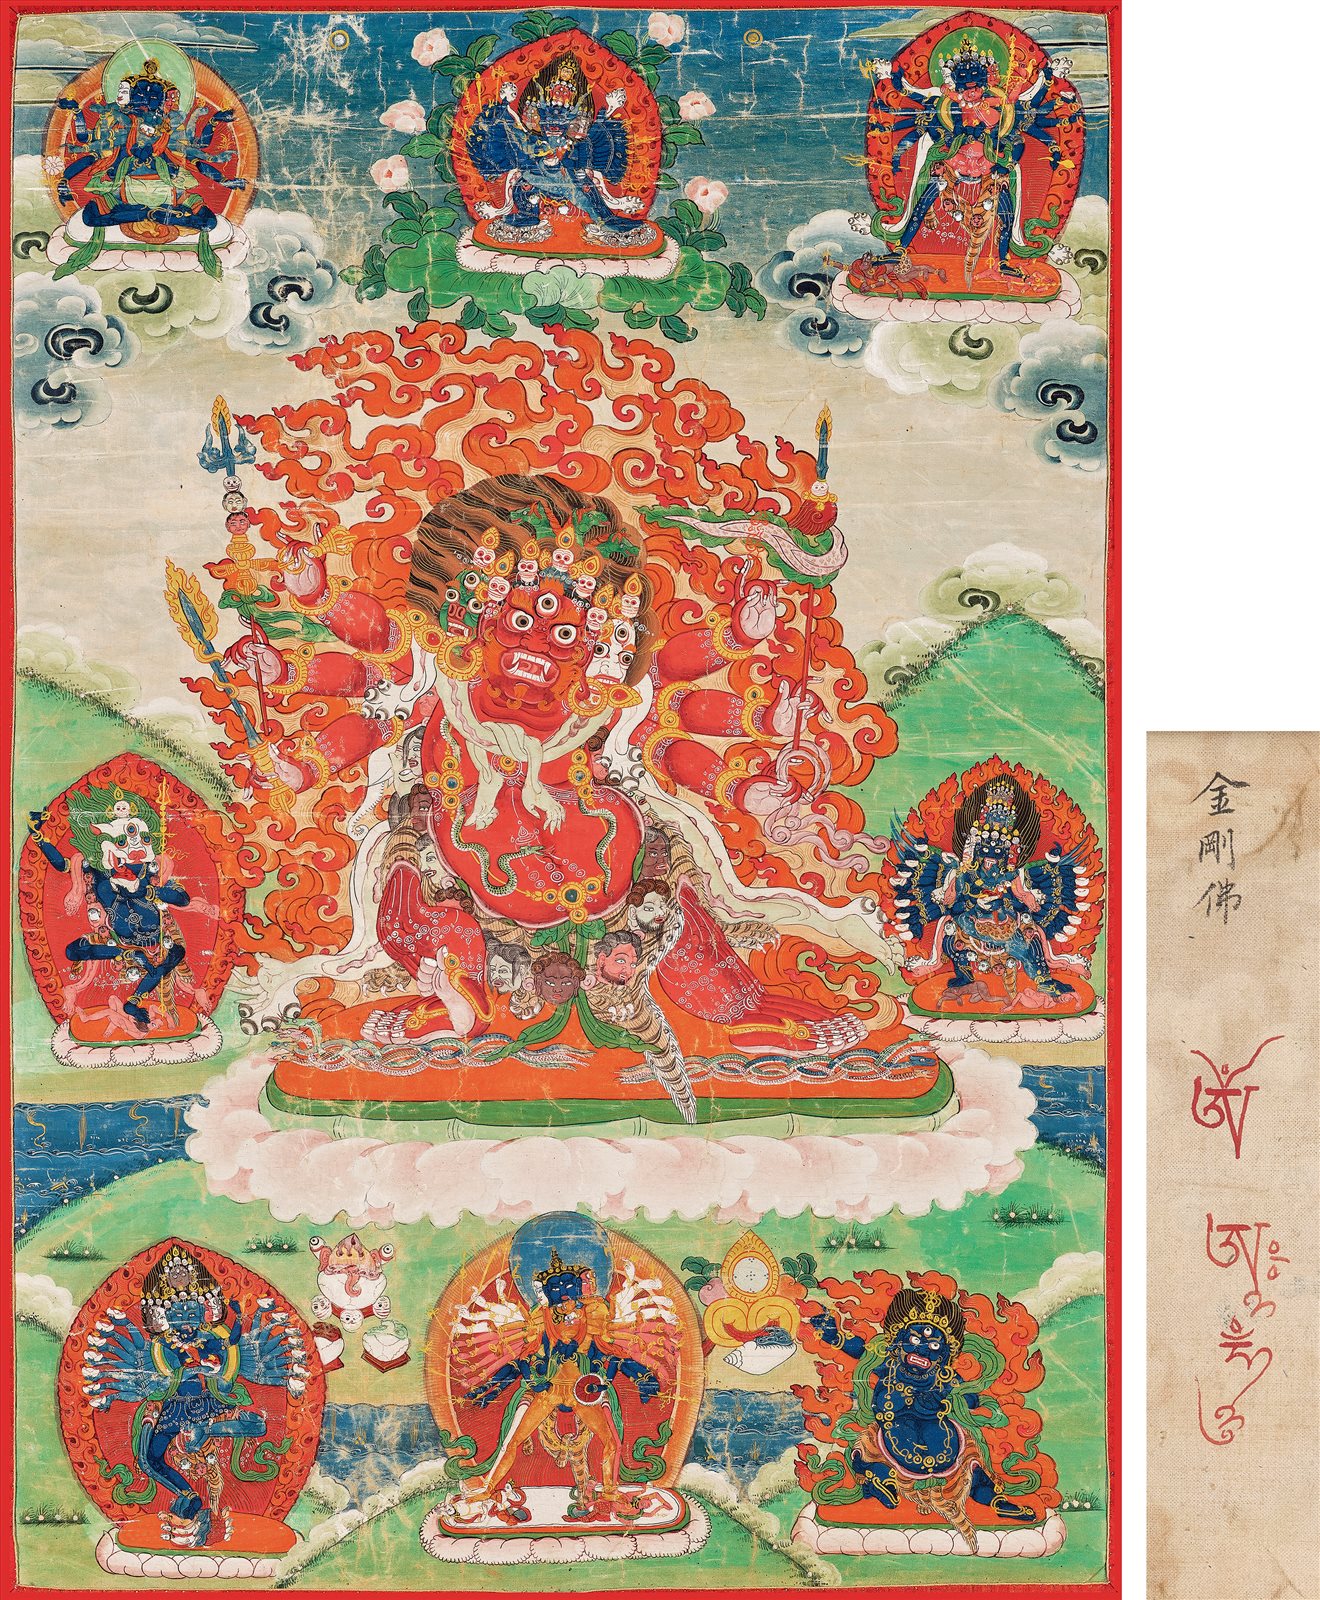 金剛佛
ཨོཾ
ཨཱཿ
ཧཱུྃ